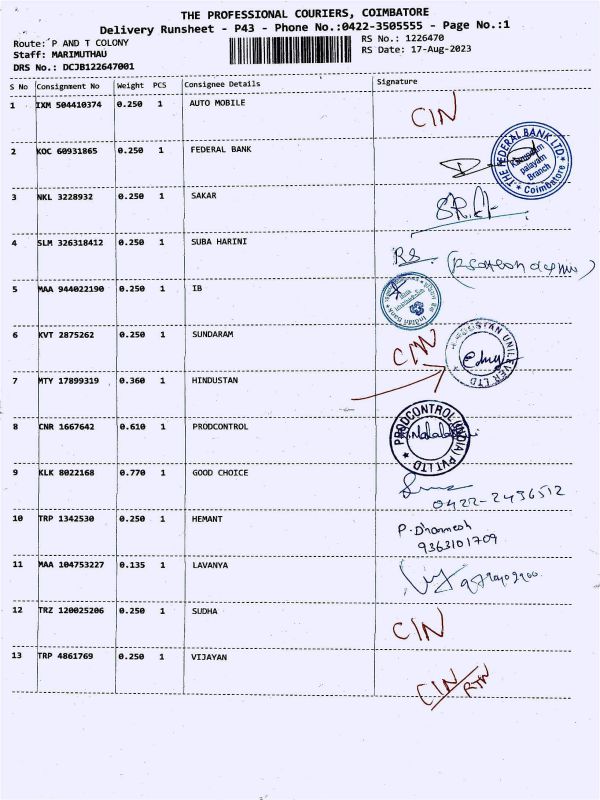 THE PROFESSIONAL COURIERS, COIMBATORE
Delivery Runsheet - P43 - Phone No.:0422-3505555 - Page No.:1
Route: P AND T COLONY
RS No.: 1226470
Staff: MARIMUTHAU
RS Date: 17-Aug-2023
DRS No.: DCJB122647001
S No Consignment No Weight PCS Consignee Details Signature
1 IXM 504410374 0.250 1 AUTO MOBILE CIN
2 KOC 60931865 0.250 1 FEDERAL BANK
THE FEDERAL BANK LTD
palayam
Branch
Coimbatore
3 NKL 3228932 0.250 1 SAKAR
4 SLM 326318412 0.250 1 SUBA HARINI RS
5 MAA 944022190 0.250 1 IB
6 KVT 2875262 0.250 1 SUNDARAM CIN
HINDUSTAN UNILEVER LTD
7 MTY 17899319 0.360 1 HINDUSTAN
8 CNR 1667642 0.610 1 PRODCONTROL
PRODCONTROL (INDIA) PVT LTD
9 KLK 8022168 0.770 1 GOOD CHOICE
0422-2436512
10 TRP 1342530 0.250 1 HEMANT P. Dharmesh
9363101709
11 MAA 104753227 0.135 1 LAVANYA
12 TRZ 120025206 0.250 1 SUDHA CIN
13 TRP 4861769 0.250 1 VIJAYAN CIN/RTN